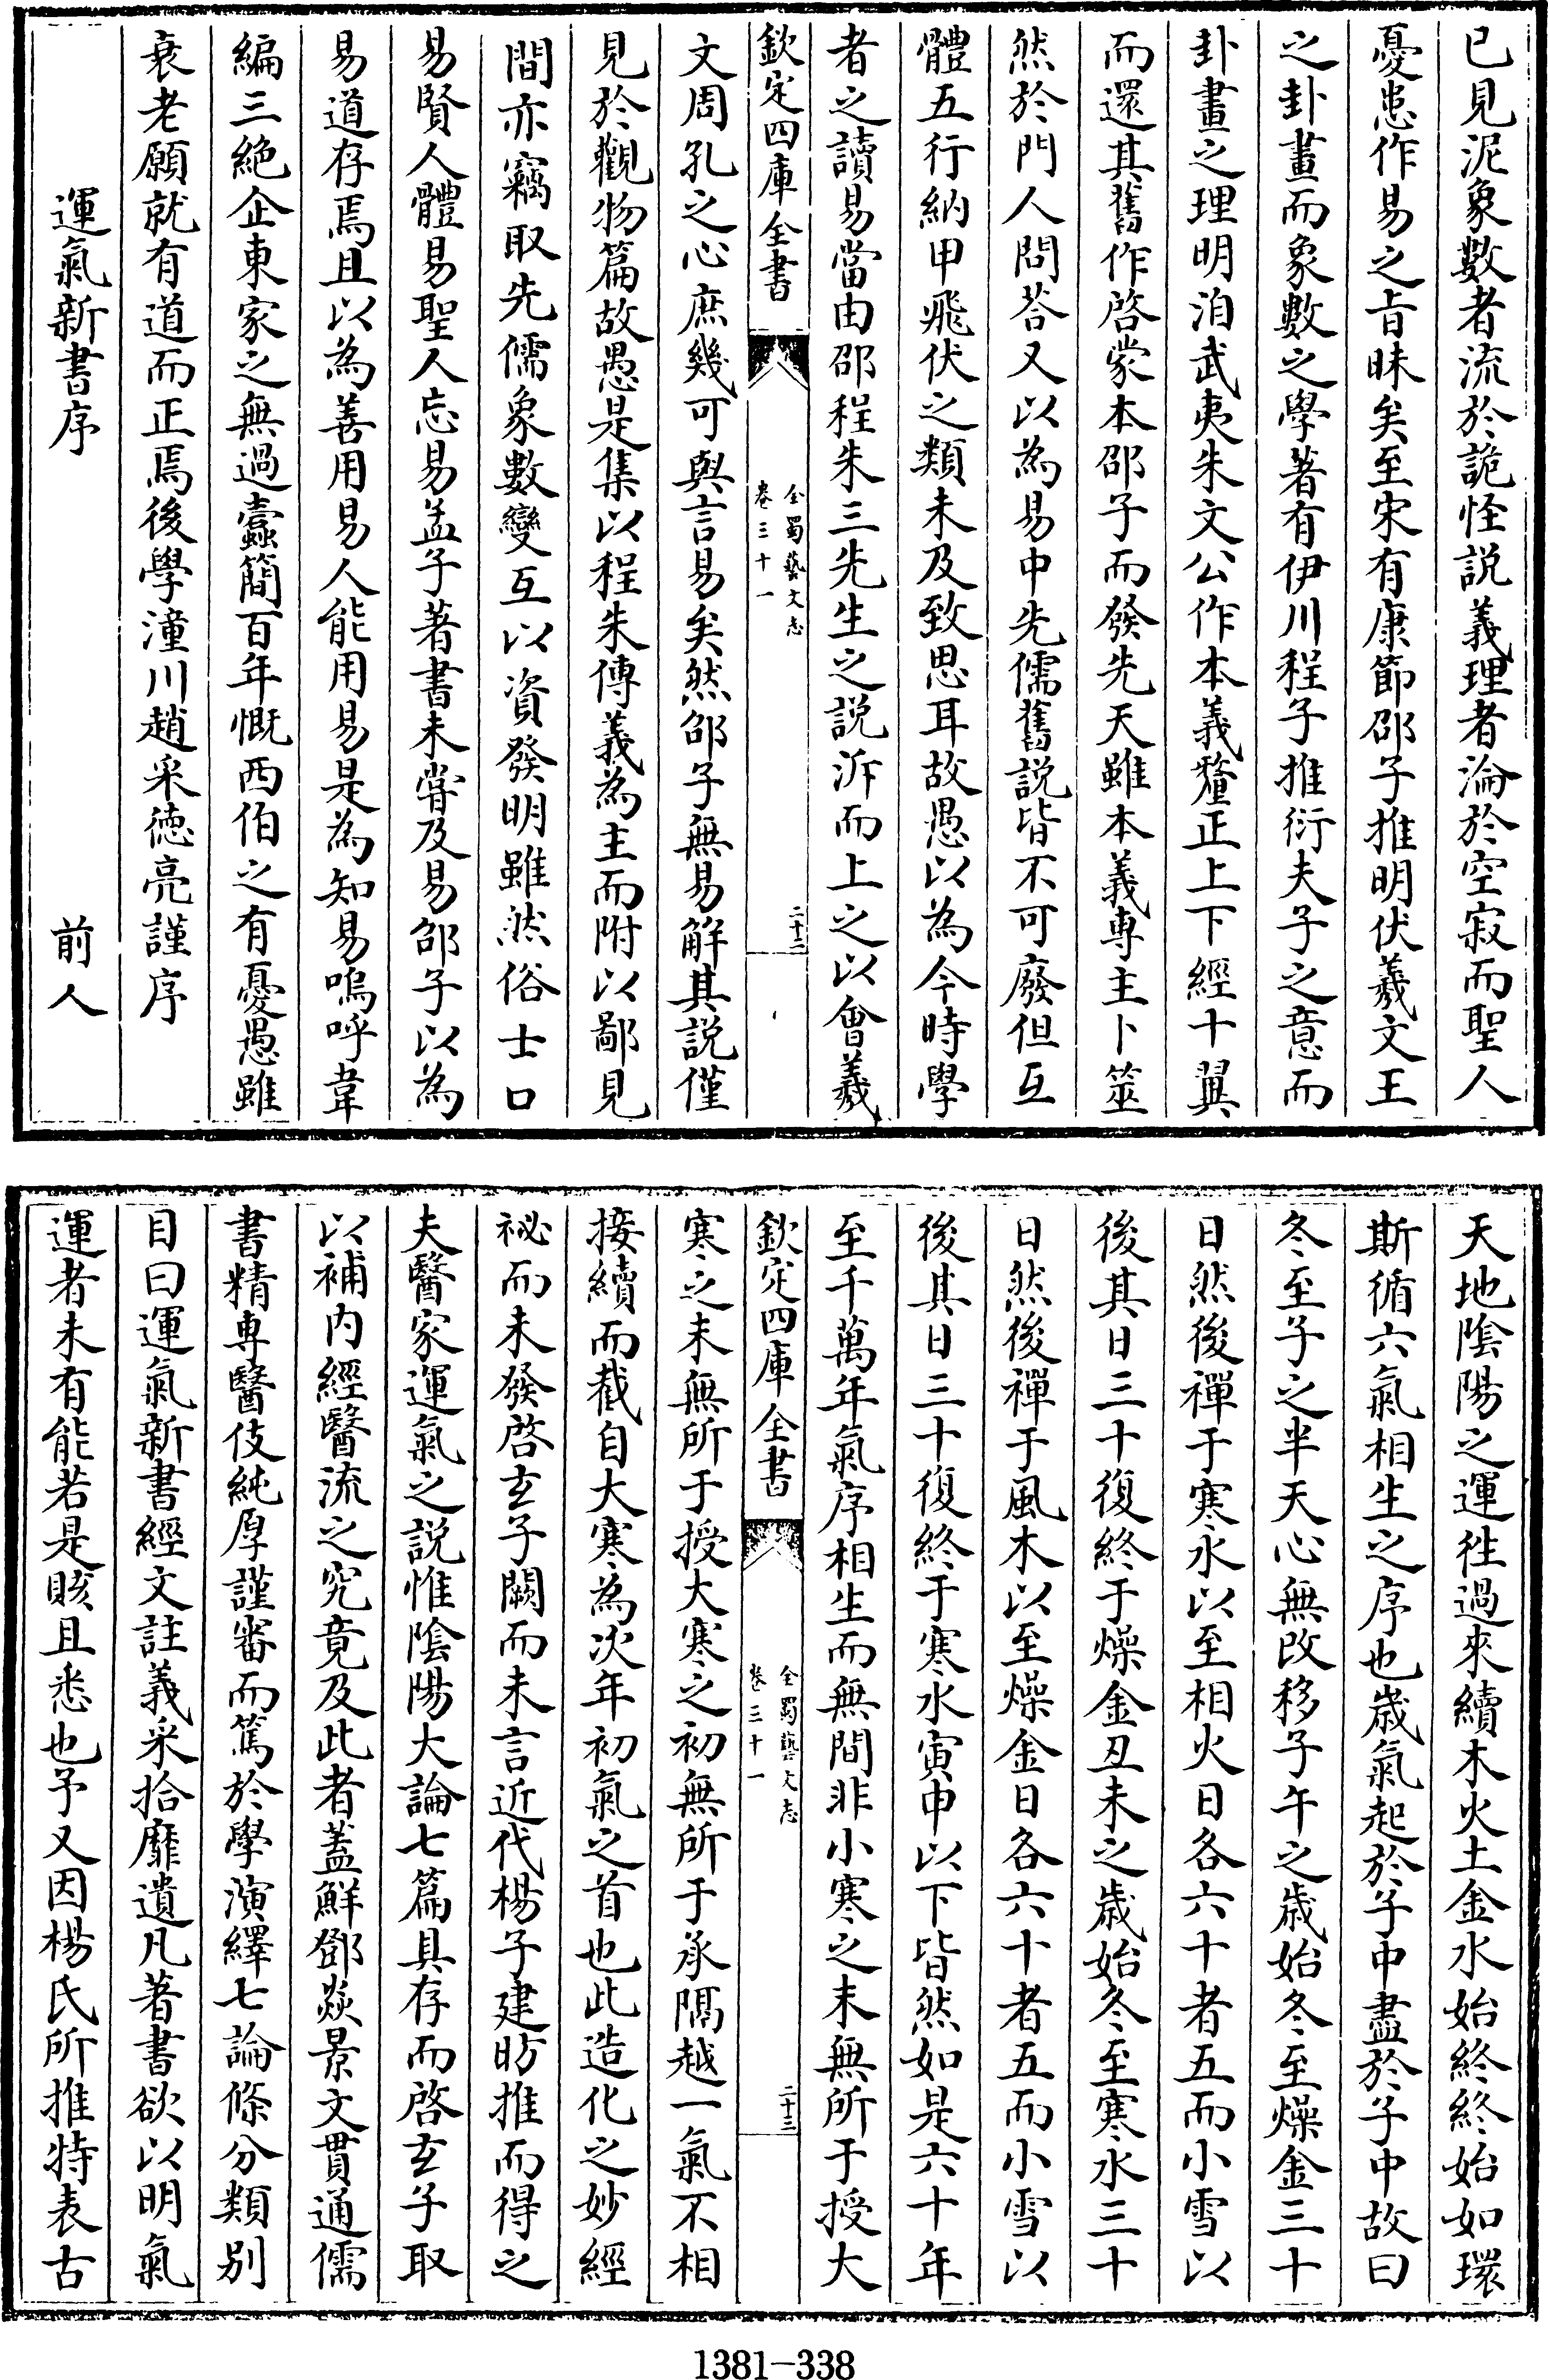 已見泥象數者流於詭怪説義理者淪於空寂而聖人
憂患作易之㫖昧矣至宋有康節邵子推明伏羲文王
之卦畫而象數之學著有伊川程子推衍夫子之意而
卦畫之理明洎武夷朱文公作本義釐正上下經十翼
而還其舊作啓蒙本邵子而發先天雖本義專主卜筮
然於門人問荅又以為易中先儒舊説皆不可廢但互
體五行納甲飛伏之類未及致思耳故愚以為今時學
者之讀易當由邵程朱三先生之説泝而上之以會羲
欽定四庫全書
全蜀藝文志
卷三十一
二十二
文周孔之心庶幾可與言易矣然邵子無易解其説僅
見於觀物篇故愚是集以程朱傳義為主而附以鄙見
間亦竊取先儒象數變互以資發明雖然俗士口
易賢人體易聖人忘易孟子著書未嘗及易邵子以為
易道存焉且以為善用易人能用易是為知易嗚呼韋
編三絶企東家之無過蠧簡百年慨西伯之有憂愚雖
衰老願就有道而正焉後學潼川趙采徳亮謹序
運氣新書序 前人
天地隂陽之運徃過來續木火土金水始終終始如環
斯循六氣相生之序也嵗氣起於子中盡於子中故曰
冬至子之半天心無改移子午之嵗始冬至燥金三十
日然後禪于寒水以至相火日各六十者五而小雪以
後其日三十復終于燥金丑未之嵗始冬至寒水三十
日然後禪于風木以至燥金日各六十者五而小雪以
後其日三十復終于寒水寅申以下皆然如是六十年
至千萬年氣序相生而無間非小寒之末無所于授大
欽定四庫全書
全蜀藝文志
卷三十一
二十三
寒之末無所于授大寒之初無所于承隔越一氣不相
接續而截自大寒為次年初氣之首也此造化之妙經
祕而未發啓玄子闕而未言近代楊子建昉推而得之
夫醫家運氣之説惟隂陽大論七篇具存而啓玄子取
以補内經醫流之究竟及此者蓋鮮鄧焱景文貫通儒
書精專醫伎純厚謹審而篤於學演繹七論條分類别
目曰運氣新書經文註義采拾靡遺凡著書欲以明氣
運者未有能若是賅且悉也予又因楊氏所推特表古
1381-338